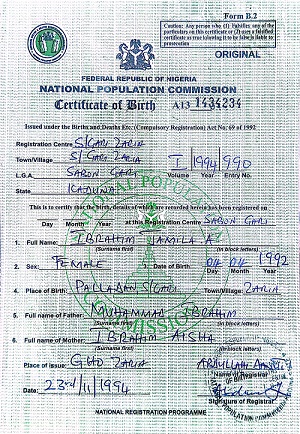 Form B.2
Caution: Any person who (1) Falsifies any of the particulars on this certificate or (2) uses a falsified certificate as true knowing it to be false is liable to prosecution
ORIGINAL
FEDERAL REPUBLIC OF NIGERIA
NATIONAL POPULATION COMMISSION
Certificate of Birth A13 1434234
Issued under the Births and Deaths Etc. (Compulsory Registration) Act No. 69 of 1992
Registration Centre S/GARI ZARIA
Town/Village S/GARI ZARIA I 1994 990
L.G.A. SABON GARI Volume Year Entry No.
State KADUNA
This is to certify that the birth, details of which are recorded herein has been registered on
Day Month Year at this Registration Centre SABON GARI
1. Full Name: IBRAHIM JAMILA A
(Surname first) (in block letters)
2. Sex: FEMALE 3. Date of Birth: 04 04 1992
Day Month Year
4. Place of Birth: PALLADAN S/GARI Town/Village: ZARIA
5. Full name of Father: MUHAMMAD IBRAHIM
(Surname first) (in block letters)
6. Full name of Mother: IBRAHIM AISHA
(Surname first) (in block letters)
Place of issue: GUD ZARIA ABDULLAHI
Name of Registrar
Date: 23rd/11/1994
Signature of Registrar
NATIONAL REGISTRATION PROGRAMME